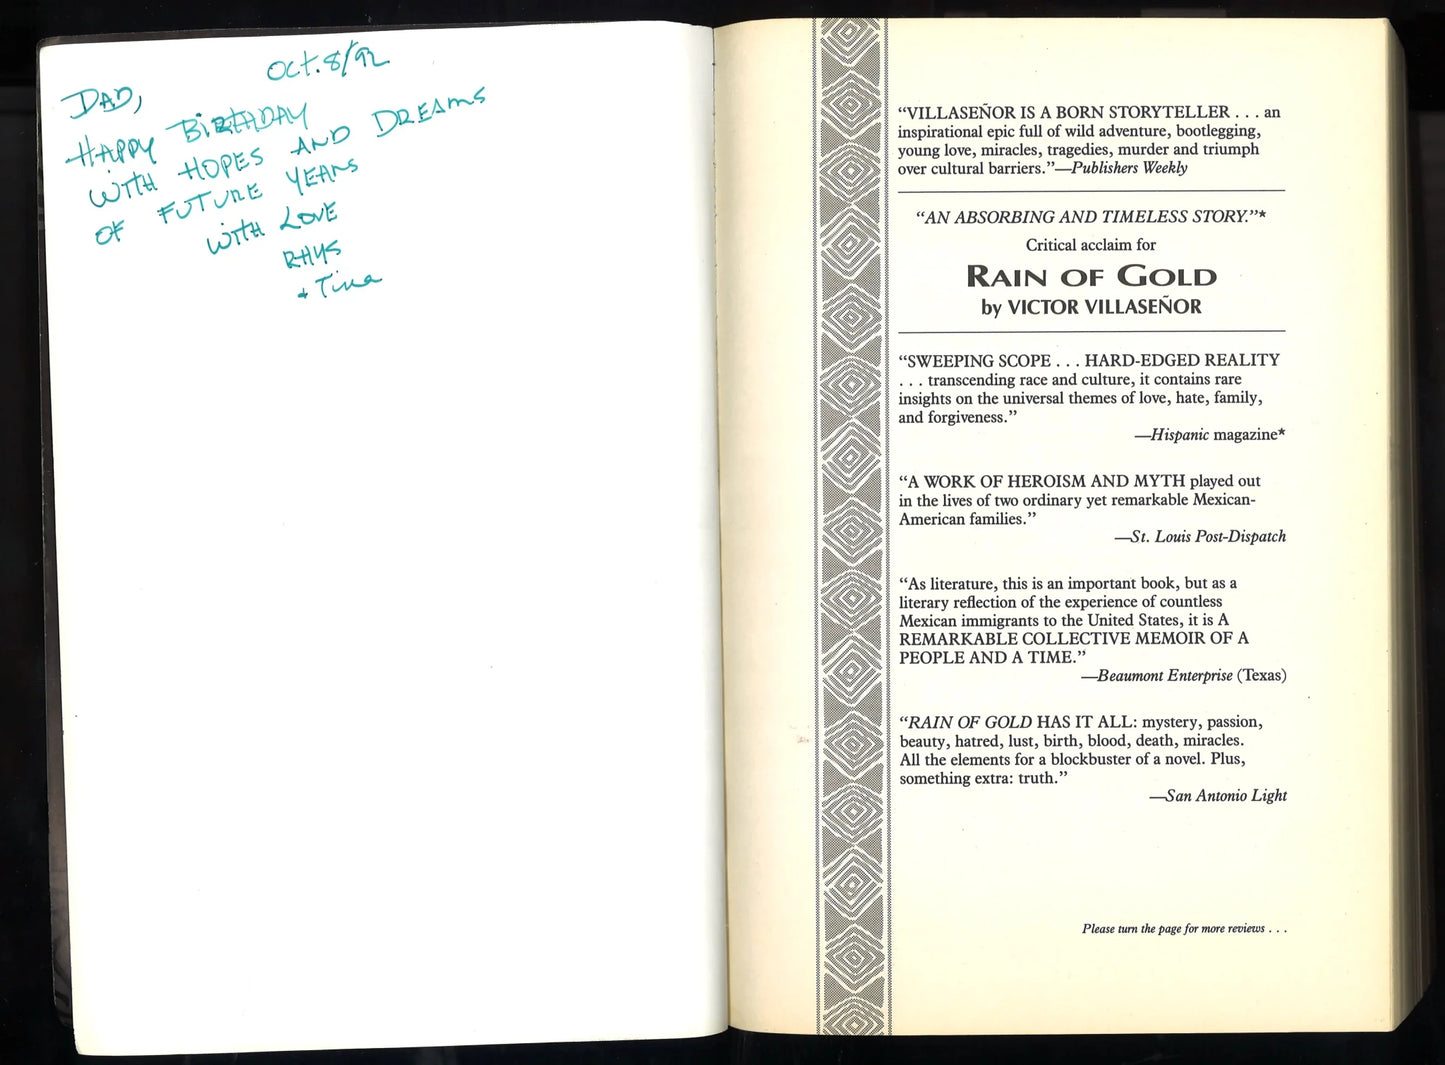 Oct. 8/92
DAD,
HAPPY BIRTHDAY
WITH HOPES AND DREAMS
OF FUTURE YEARS
WITH LOVE
RHYS
+ Tina
“VILLASEÑOR IS A BORN STORYTELLER . . . an
inspirational epic full of wild adventure, bootlegging,
young love, miracles, tragedies, murder and triumph
over cultural barriers.”—Publishers Weekly
“AN ABSORBING AND TIMELESS STORY.”*
Critical acclaim for
RAIN OF GOLD
by VICTOR VILLASEÑOR
“SWEEPING SCOPE . . . HARD-EDGED REALITY
. . . transcending race and culture, it contains rare
insights on the universal themes of love, hate, family,
and forgiveness.”
—Hispanic magazine*
“A WORK OF HEROISM AND MYTH played out
in the lives of two ordinary yet remarkable Mexican-
American families.”
—St. Louis Post-Dispatch
“As literature, this is an important book, but as a
literary reflection of the experience of countless
Mexican immigrants to the United States, it is A
REMARKABLE COLLECTIVE MEMOIR OF A
PEOPLE AND A TIME.”
—Beaumont Enterprise (Texas)
“RAIN OF GOLD HAS IT ALL: mystery, passion,
beauty, hatred, lust, birth, blood, death, miracles.
All the elements for a blockbuster of a novel. Plus,
something extra: truth.”
—San Antonio Light
Please turn the page for more reviews . . .